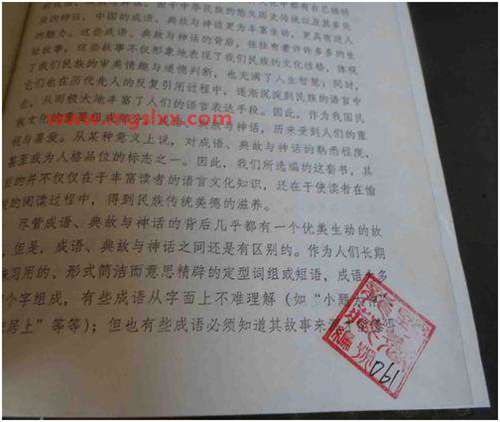 的神话，中国的成语、典故与神话更为丰富生动，更具有迷人
的魅力。这些成语、典故与神话的背后，往往有着许许多多的
故事，这些故事不仅形象地表现了我们民族的文化性格，体现
了我们民族的审美情趣与道德判断，也充满了人生智慧；同时，
它们也在历代先人的反复引用过程中，逐渐沉淀到民族的语言中
去，从而极大地丰富了人们的语言表达手段。因此，作为我国民
www.mgslxx.com
典故与神话，历来受到人们的重
视与喜爱。从某种意义上说，对成语、典故与神话的熟悉程度，
甚至成为人格品位的标志之一。因此，我们所选编的这套书，其
的并不仅仅在于丰富读者的语言文化知识，还在于使读者在愉
的阅读过程中，得到民族传统美德的滋养。
尽管成语、典故与神话的背后几乎都有一个优美生动的故
但是，成语、典故与神话之间还是有区别的。作为人们长期
习用的、形式简洁而意思精辟的定型词组或短语，成语大多
个字组成，有些成语从字面上不难理解（如“小题
居上”等等）；但也有些成语必须知道其故事来
编号
761